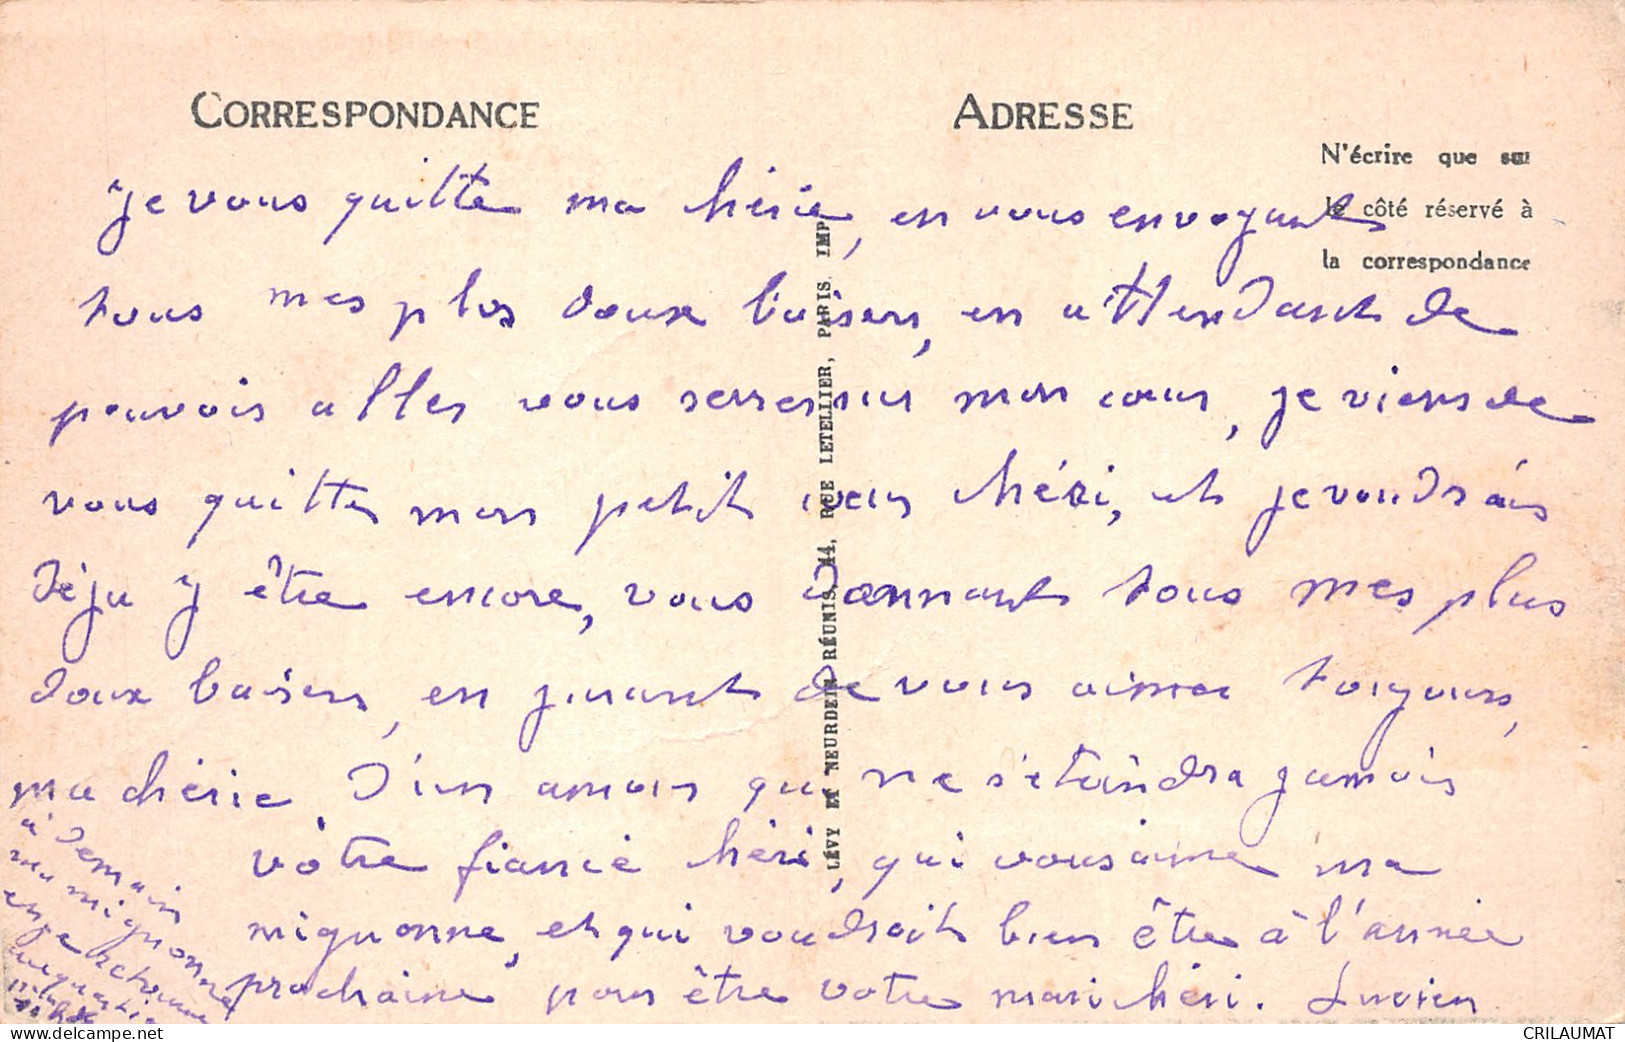 CORRESPONDANCE
ADRESSE
N'écrire que sur
le côté réservé à
la correspondance
je vous quitte ma chérie, en vous envoyant
tous mes plus doux baisers, en attendant de
pouvoir aller vous serrer sur mon cœur, je viens de
vous quitter mon petit cœur chéri, et je voudrais
déja y être encore, vous donnant tous mes plus
doux baisers, en jurant de vous aimer toujours,
ma chérie d'un amour qui ne s'eteindra jamais
vôtre fiancé chéri, qui vous aime ma
mignonne, et qui voudrait bien être à l'année
prochaine pour être votre mari chéri. Lucien
à demain
ma mignonne
LÉVY ET NEURDEIN RÉUNIS, 44, RUE LETELLIER, PARIS. IMP.
CRILAUMAT